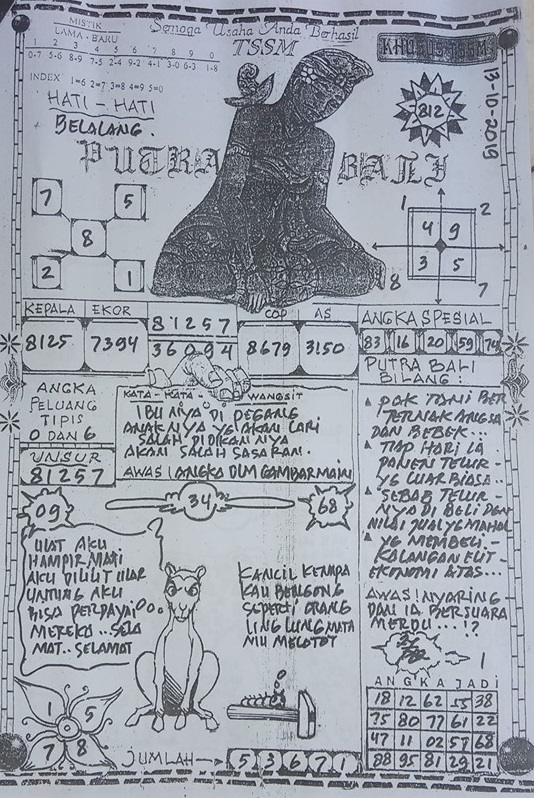 MISTIK
LAMA - BARU
1 2 3 4 5 6 7 8 9 0
0-7 5-6 8-9 7-5 2-4 9-2 4-1 3-0 6-3 1-8
INDEX 1=6 2=7 3=8 4=9 5=0
Semoga Usaha Anda Berhasil
TSSM
KHUSUS TSSM
13-10-2019
812
HATI - HATI
BELALANG.
PUTRA BALI
7 5
8
2 1
1 2
4 9
3 5
8 7
KEPALA EKOR
8125 7394
81257
36094
COP AS
8679 3150
ANGKA SPESIAL
83 16 20 59 74
ANGKA
PELUANG
TIPIS
0 DAN 6
UNSUR
81257
KATA - KATA - WANGSIT
IBU NYA DI PEGANG
ANAK NYA YG AKAN LARI
SALAH DIDIKAN NYA
AKAN SALAH SASARAN.
AWAS! ANGKA DLM GAMBAR MAIN
PUTRA BALI
BILANG:
PAK TONI BER
TERNAK ANGSA
DAN BEBEK...
TIAP HARI IA
PANEN TELUR-
YG LUAR BIASA..
SEBAB TELUR-
NYA DI BELI DEN
NILAI JUAL YG MAHAL
YG MEMBELI-
KALANGAN ELIT-
EKONOMI ATAS...
AWAS! NYARING
DAN IA BERSUARA
MERDU....!?
09
34
68
ULAT AKU
HAMPIR MATI
AKU DILILIT ULAR
UNTUNG AKU
BISA PERDAYAI
MEREKA.. SELA
MAT.. SELAMAT
KANCIL KENAPA
KAU BENGONG
SEPERTI ORANG
LING LUNG MATA
MU MELOTOT
1 5
7 8
JUMLAH → 5 3 6 7 1
ANGKA JADI
18 12 62 55 38
75 80 77 61 22
47 11 02 57 68
88 95 81 29 21